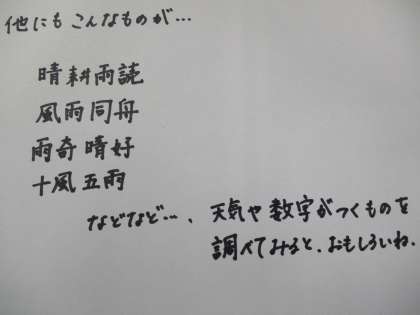 他にもこんなものが…
晴耕雨読
風雨同舟
雨奇晴好
十風五雨
などなど…、天氣や数字がつくものを
調べてみると、おもしろいね.